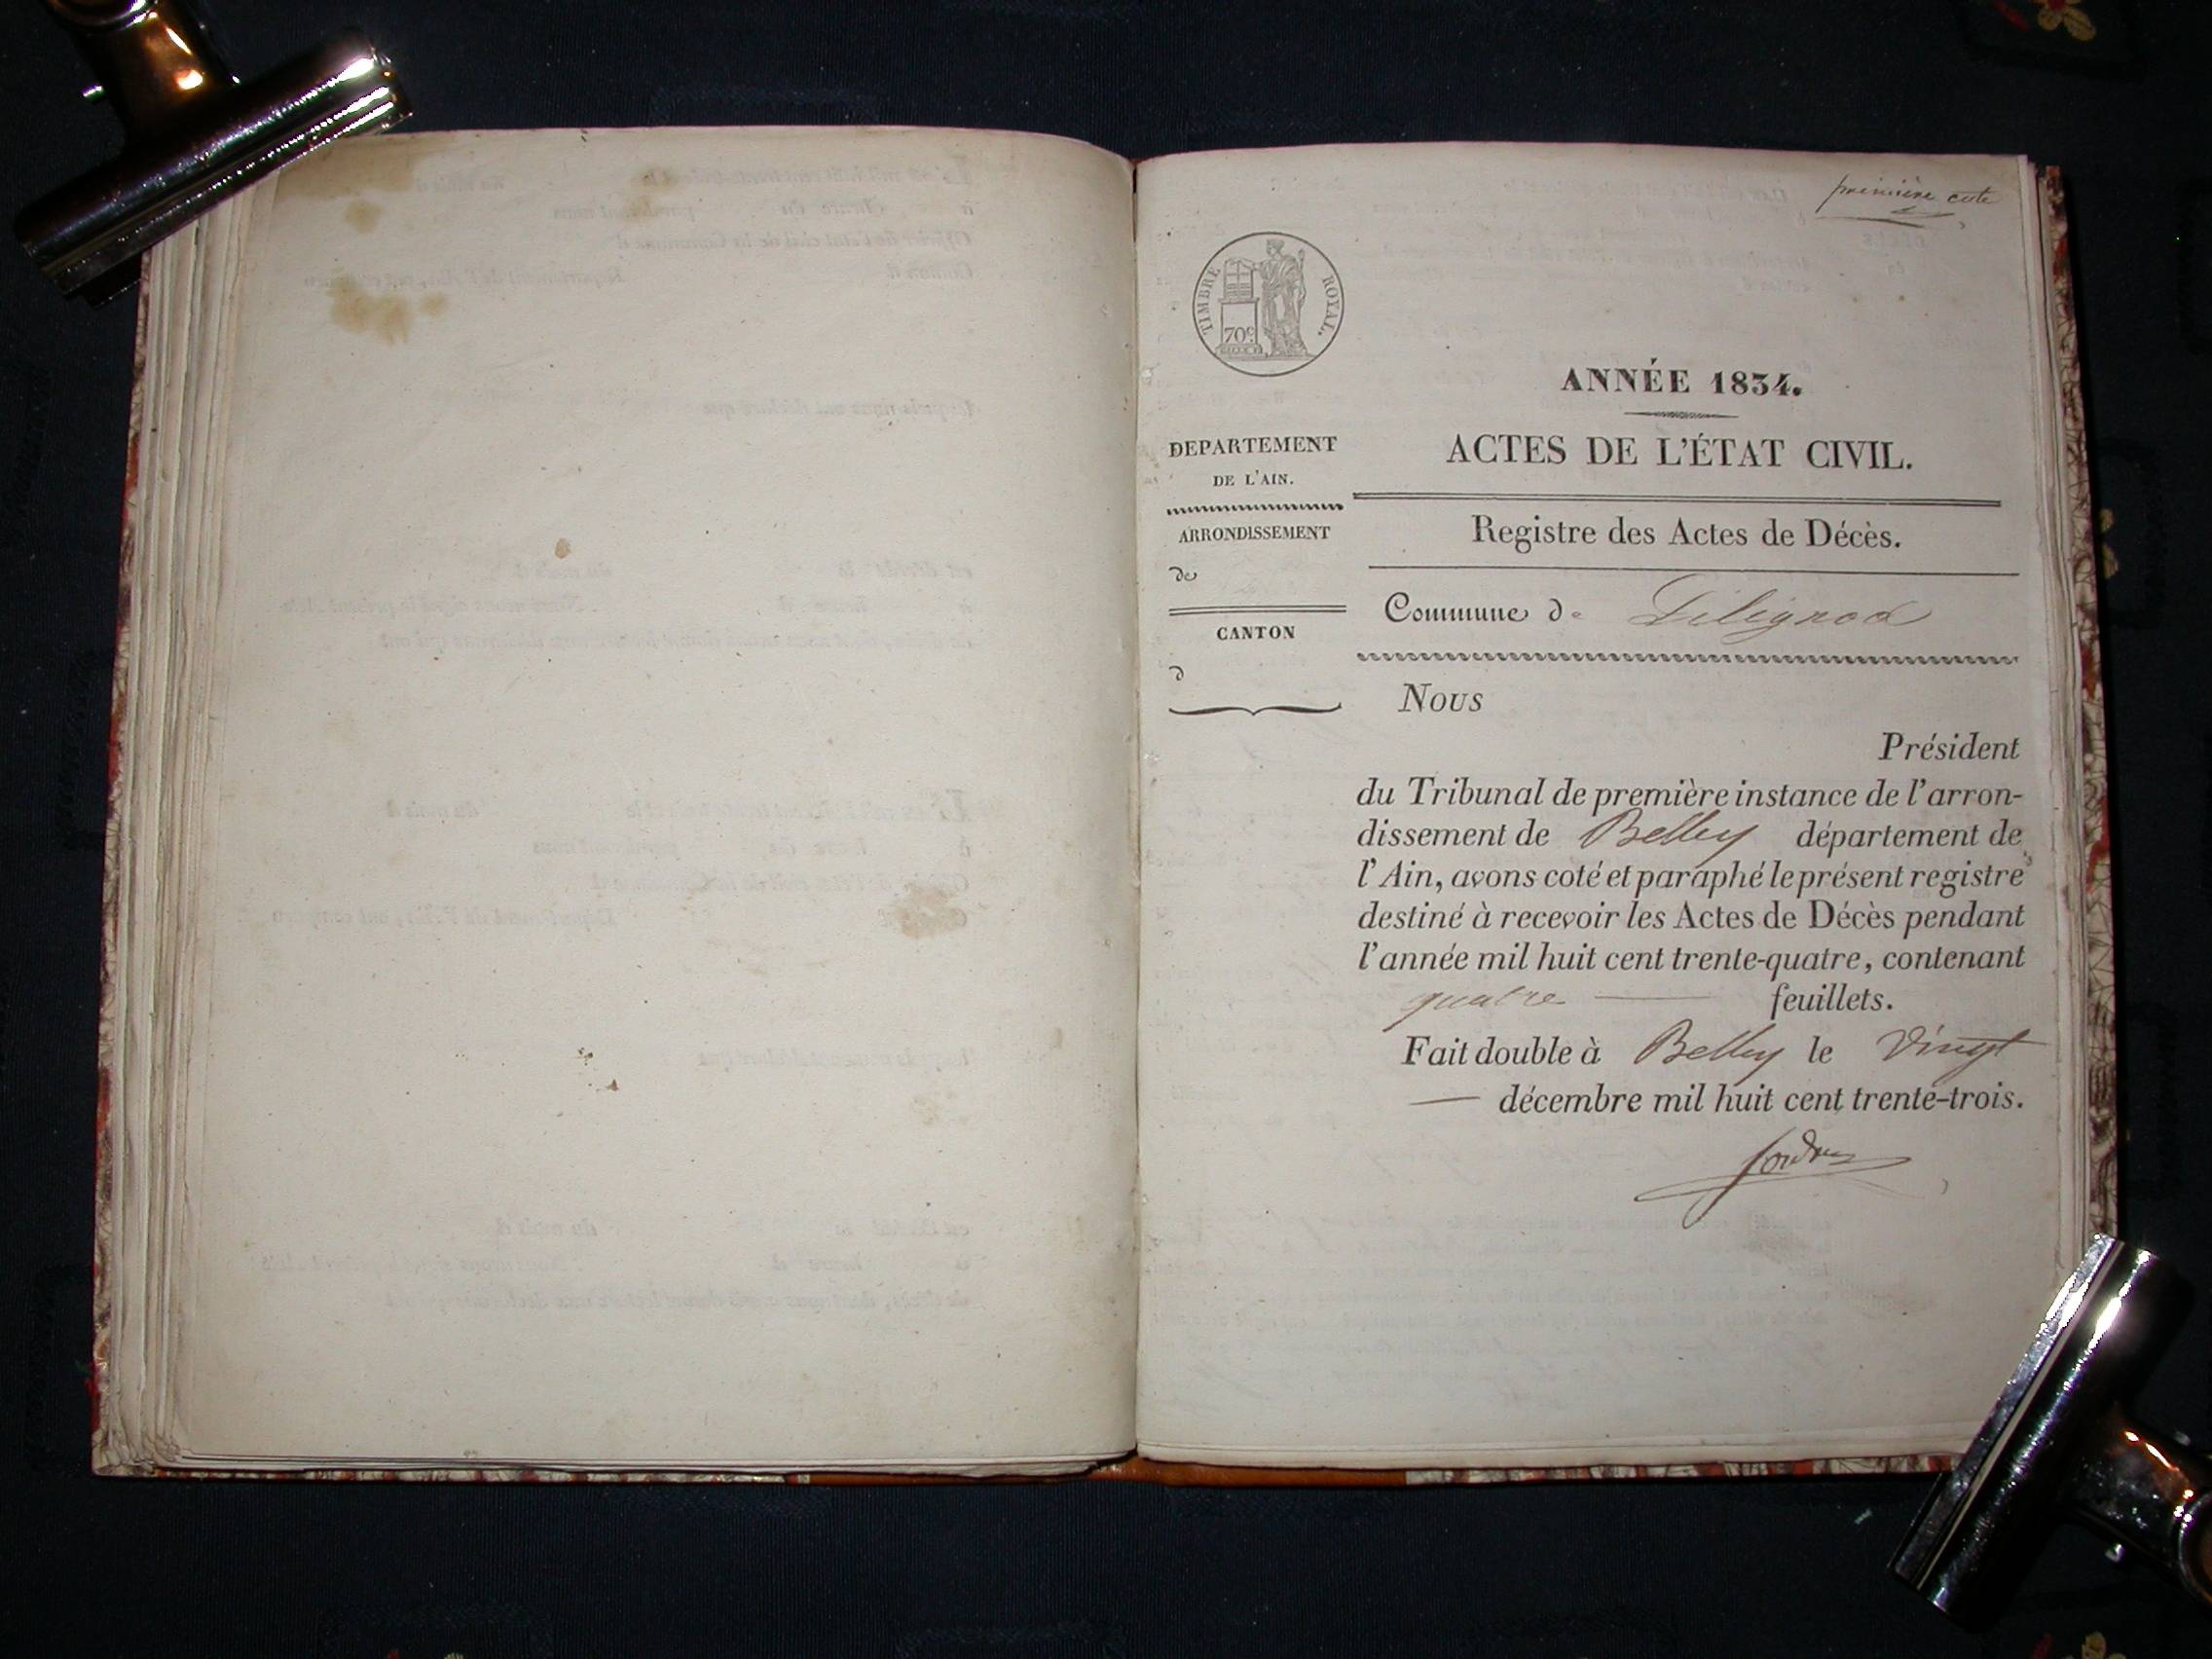 première cote
TIMBRE ROYAL.
70c
ANNÉE 1834.
ACTES DE L'ÉTAT CIVIL.
Registre des Actes de Décès.
Commune de Lilignod
DEPARTEMENT
DE L'AIN.
ARRONDISSEMENT
de
CANTON
d
Nous
Président
du Tribunal de première instance de l'arron-
dissement de Belley département de
l'Ain, avons coté et paraphé le présent registre
destiné à recevoir les Actes de Décès pendant
l'année mil huit cent trente-quatre, contenant
quatre — feuillets.
Fait double à Belley le Vingt
— décembre mil huit cent trente-trois.